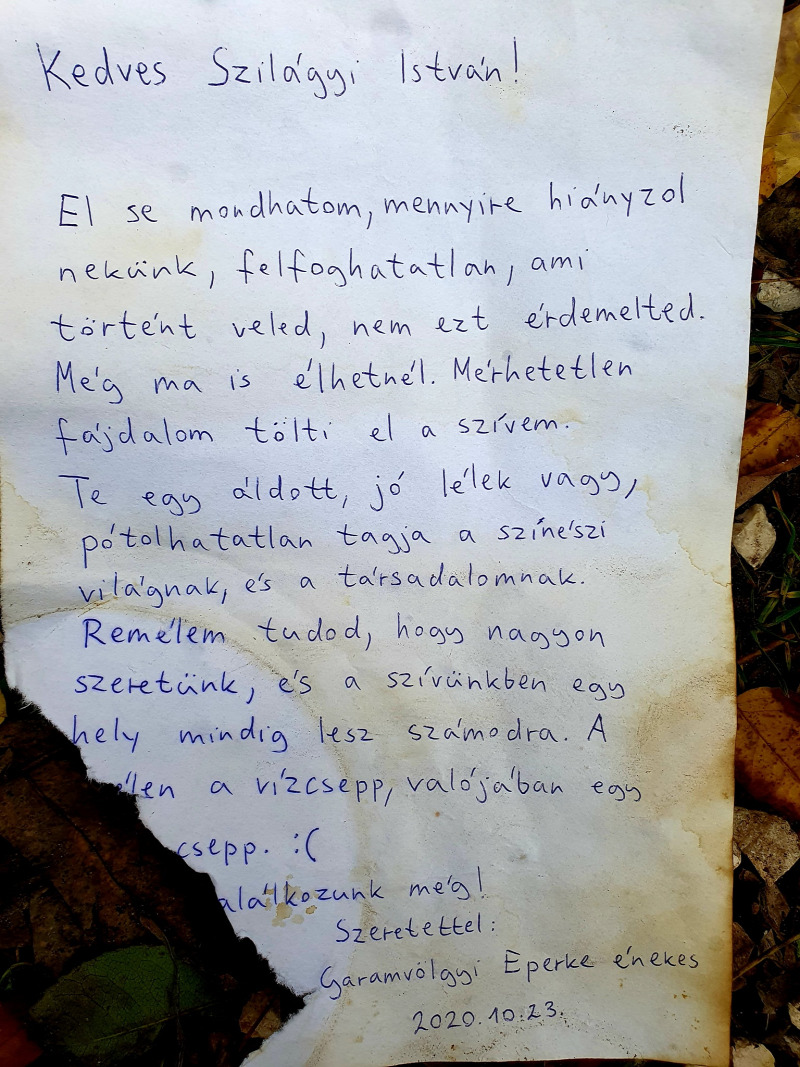 Kedves Szilágyi István!
El se mondhatom, mennyire hiányzol
nekünk, felfoghatatlan, ami
történt veled, nem ezt érdemelted.
Még ma is élhetnél. Mérhetetlen
fájdalom tölti el a szívem.
Te egy áldott, jó lélek vagy,
pótolhatatlan tagja a színészi
világnak, és a társadalomnak.
Remélem tudod, hogy nagyon
szeretünk, és a szívünkben egy
hely mindig lesz számodra. A
a vízcsepp, valójában egy
csepp. :(
még!
Szeretettel:
Garamvölgyi Eperke énekes
2020.10.23.